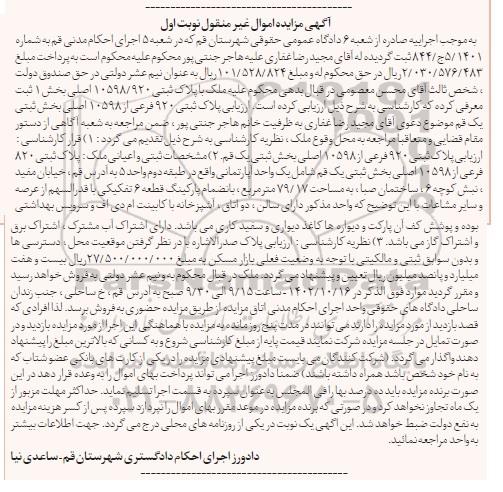 آگهی مزایده اموال غیر منقول نوبت اول
به موجب اجراییه صادره از شعبه ۶ دادگاه عمومی حقوقی شهرستان قم که در شعبه ۵ اجرای احکام مدنی قم به شماره
۵/۱۴۰۱ج/۸۴۴ ثبت گردیده له آقای مجید رضا غفاری علیه هاجر جنتی پور محکوم علیه محکوم است به پرداخت مبلغ
۲/۰۳۰/۵۷۶/۴۸۳ ریال در حق محکوم له و مبلغ ۱۰۱/۵۲۸/۸۲۴ ریال به عنوان نیم عشر دولتی در حق صندوق دولت
، شخص ثالث آقای مجتبی معصومی در قبال بدهی محکوم علیه ملک با پلاک ثبتی ۱۰۵۹۸/۹۲۰ اصلی بخش ۱ ثبت
معرفی کرده که کارشناسی به شرح ذیل ارزیابی کرده است. ارزیابی پلاک ثبتی ۹۲۰ فرعی از ۱۰۵۹۸ اصلی بخش ثبتی
یک قم موضوع دعوی آقای مجید رضا غفاری به ظرفیت خانم هاجر جنتی پور ، ضمن مراجعه به شعبه آگاهی از دستور
مقام قضایی و متعاقبا مراجعه به محل وقوع ملک ، نظریه کارشناسی به شرح ذیل تقدیم می گردد : ۱) قرار کارشناسی :
ارزیابی پلاک ثبتی ۹۲۰ فرعی از ۱۰۵۹۸ اصلی بخش ثبتی یک قم. ۲) مشخصات ثبتی و اعیانی ملک : پلاک ثبتی ۸۲۰
فرعی از ۱۰۵۹۸ اصلی بخش ثبتی یک قم شامل یک واحد آپارتمانی واقع در طبقه دوم واحد ۵ به آدرس قم ، خیابان مفید
، نبش کوچه ۶ ، ساختمان صبا ، به مساحت ۷۹/۱۷ متر مربع ، بانضمام پارکینگ قطعه ۶ تفکیکی با قدرالسهم از عرصه
و سایر مشاعات با این توضیح که واحد مذکور دارای سالن ، دو اتاق ، آشپزخانه با کابینت ام دی اف و سرویس بهداشتی
بوده و پوشش کف آن پارکت و دیواره ها کاغذ دیواری و سفید کاری می باشد. دارای اشتراک آب مشترک ، اشتراک برق
و اشتراک گاز می باشد. ۳) نظریه کارشناسی : ارزیابی پلاک صدرالاشاره با در نظر گرفتن موقعیت محل ، دسترسی ها
و بدون سوابق ثبتی و مالکیتی با توجه به وضعیت فعلی بازار مسکن به مبلغ ۲۷/۵۰۰/۰۰۰/۰۰۰ ریال بیست و هفت
میلیارد و پانصد میلیون ریال تعیین و پیشنهاد می گردد. ملک در قبال محکوم به و نیم عشر دولتی به فروش خواهد رسید
و مقرر گردید موارد فوق الذکر در ۱۴۰۳/۱۰/۱۶ - ساعت ۹/۱۵ الی ۹/۳۰ صبح به آدرس قم ، خ ساحلی ، جنب زندان
ساحلی دادگاه های حقوقی واحد اجرای احکام مدنی اتاق مزایده از طریق مزایده حضوری به فروش برسد. لذا افرادی که
قصد بازدید از مورد مزایده را دارند می توانند در مدت پنج روز مانده به مزایده با هماهنگی این اجرا از مورد مزایده بازدید و در
صورت تمایل در جلسه مزایده شرکت نمایند قیمت پایه از مبلغ کارشناسی شروع و به کسانی که بالاترین مبلغ را پیشنهاد
دهند واگذار می گردد. (شرکت کنندگان می بایست مبلغ پیشنهادی مزایده را در یکی از کارت های بانکی عضو شتاب که
به نام خود شخص باشد همراه داشته باشند) ضمنا دادورز اجرا می تواند پرداخت بهای اموال را به وعده قرار دهد در این
صورت برنده مزایده باید ده درصد بها را فی المجلس به عنوان سپرده به قسمت اجرا تسلیم نماید. حداکثر مهلت مزبور از
یک ماه تجاوز نخواهد کرد و در صورتی که برنده مزایده در موعد مقرر بهای اموال را نپردازد سپرده پس از کسر هزینه مزایده
به نفع دولت ضبط خواهد شد. این آگهی یک نوبت در یکی از روزنامه های محلی درج می گردد. جهت اطلاعات بیشتر
به واحد مراجعه نمائید.
دادورز اجرای احکام دادگستری شهرستان قم - ساعدی نیا